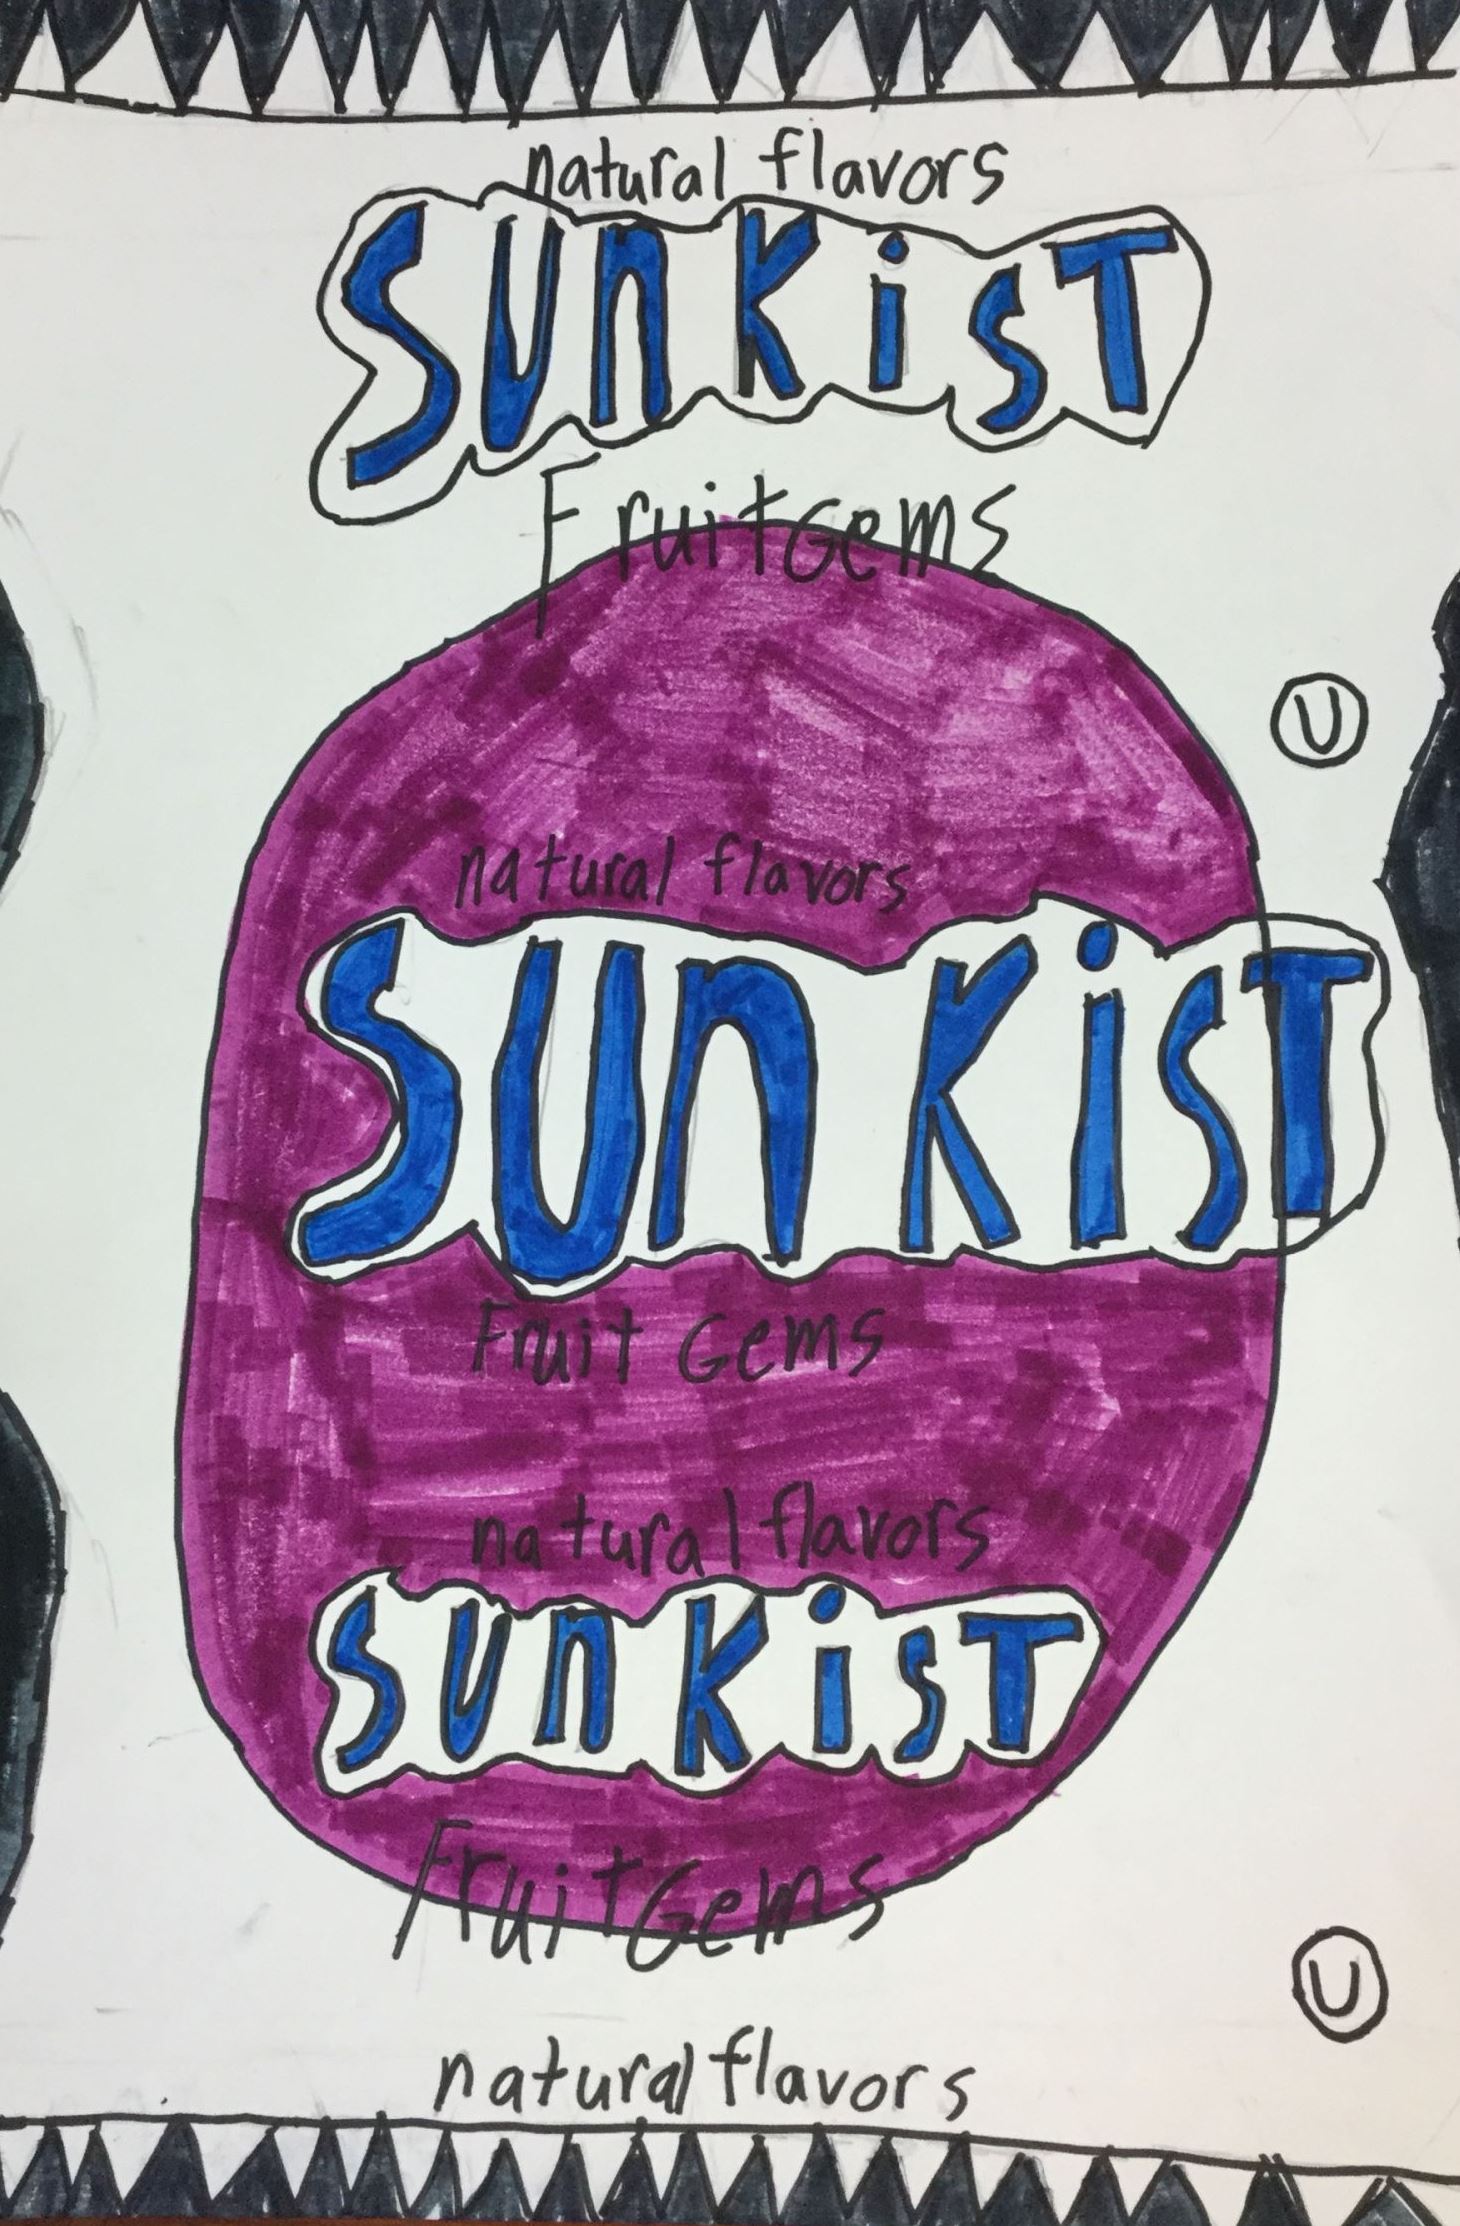 natural flavors
SunKisT
FruitGems
U
natural flavors
SunKisT
Fruit Gems
natural flavors
SunKisT
FruitGems
U
natural flavors